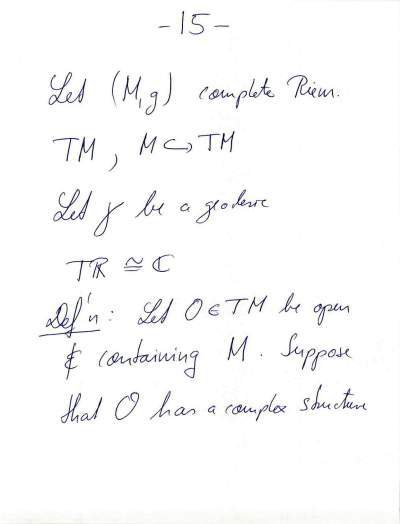 -15-
Let (M, g) complete Riem.
TM, M ↪ TM
Let γ be a geodesic
Tℝ ≅ ℂ
Def'n: Let O ∈ TM be open
& containing M. Suppose
that O has a complex structure